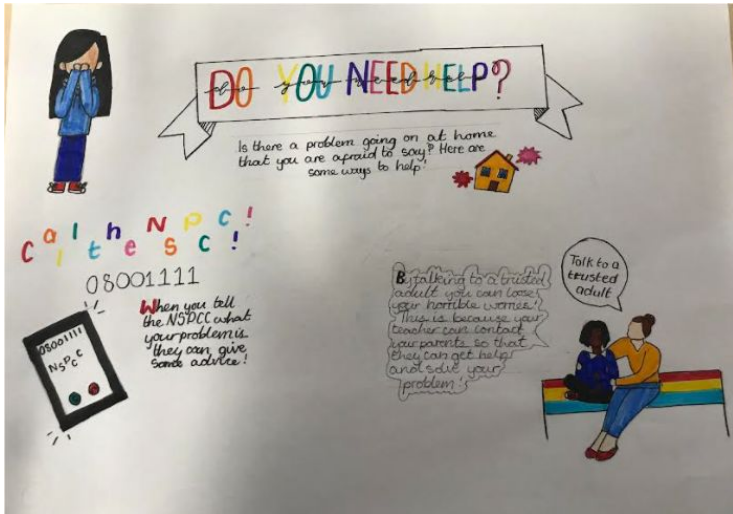 DO YOU NEED HELP?
do you need help
Is there a problem going on at home
that you are afraid to say? Here are
some ways to help!
Call the NSPCC!!
08001111
When you tell
the NSPCC what
your problem is
they can give
some advice!
08001111
NSPCC
By talking to a trusted
adult you can loose
your horrible worries!
This is because your
teacher can contact
your parents so that
they can get help
and solve your
problem!
Talk to a
trusted
adult